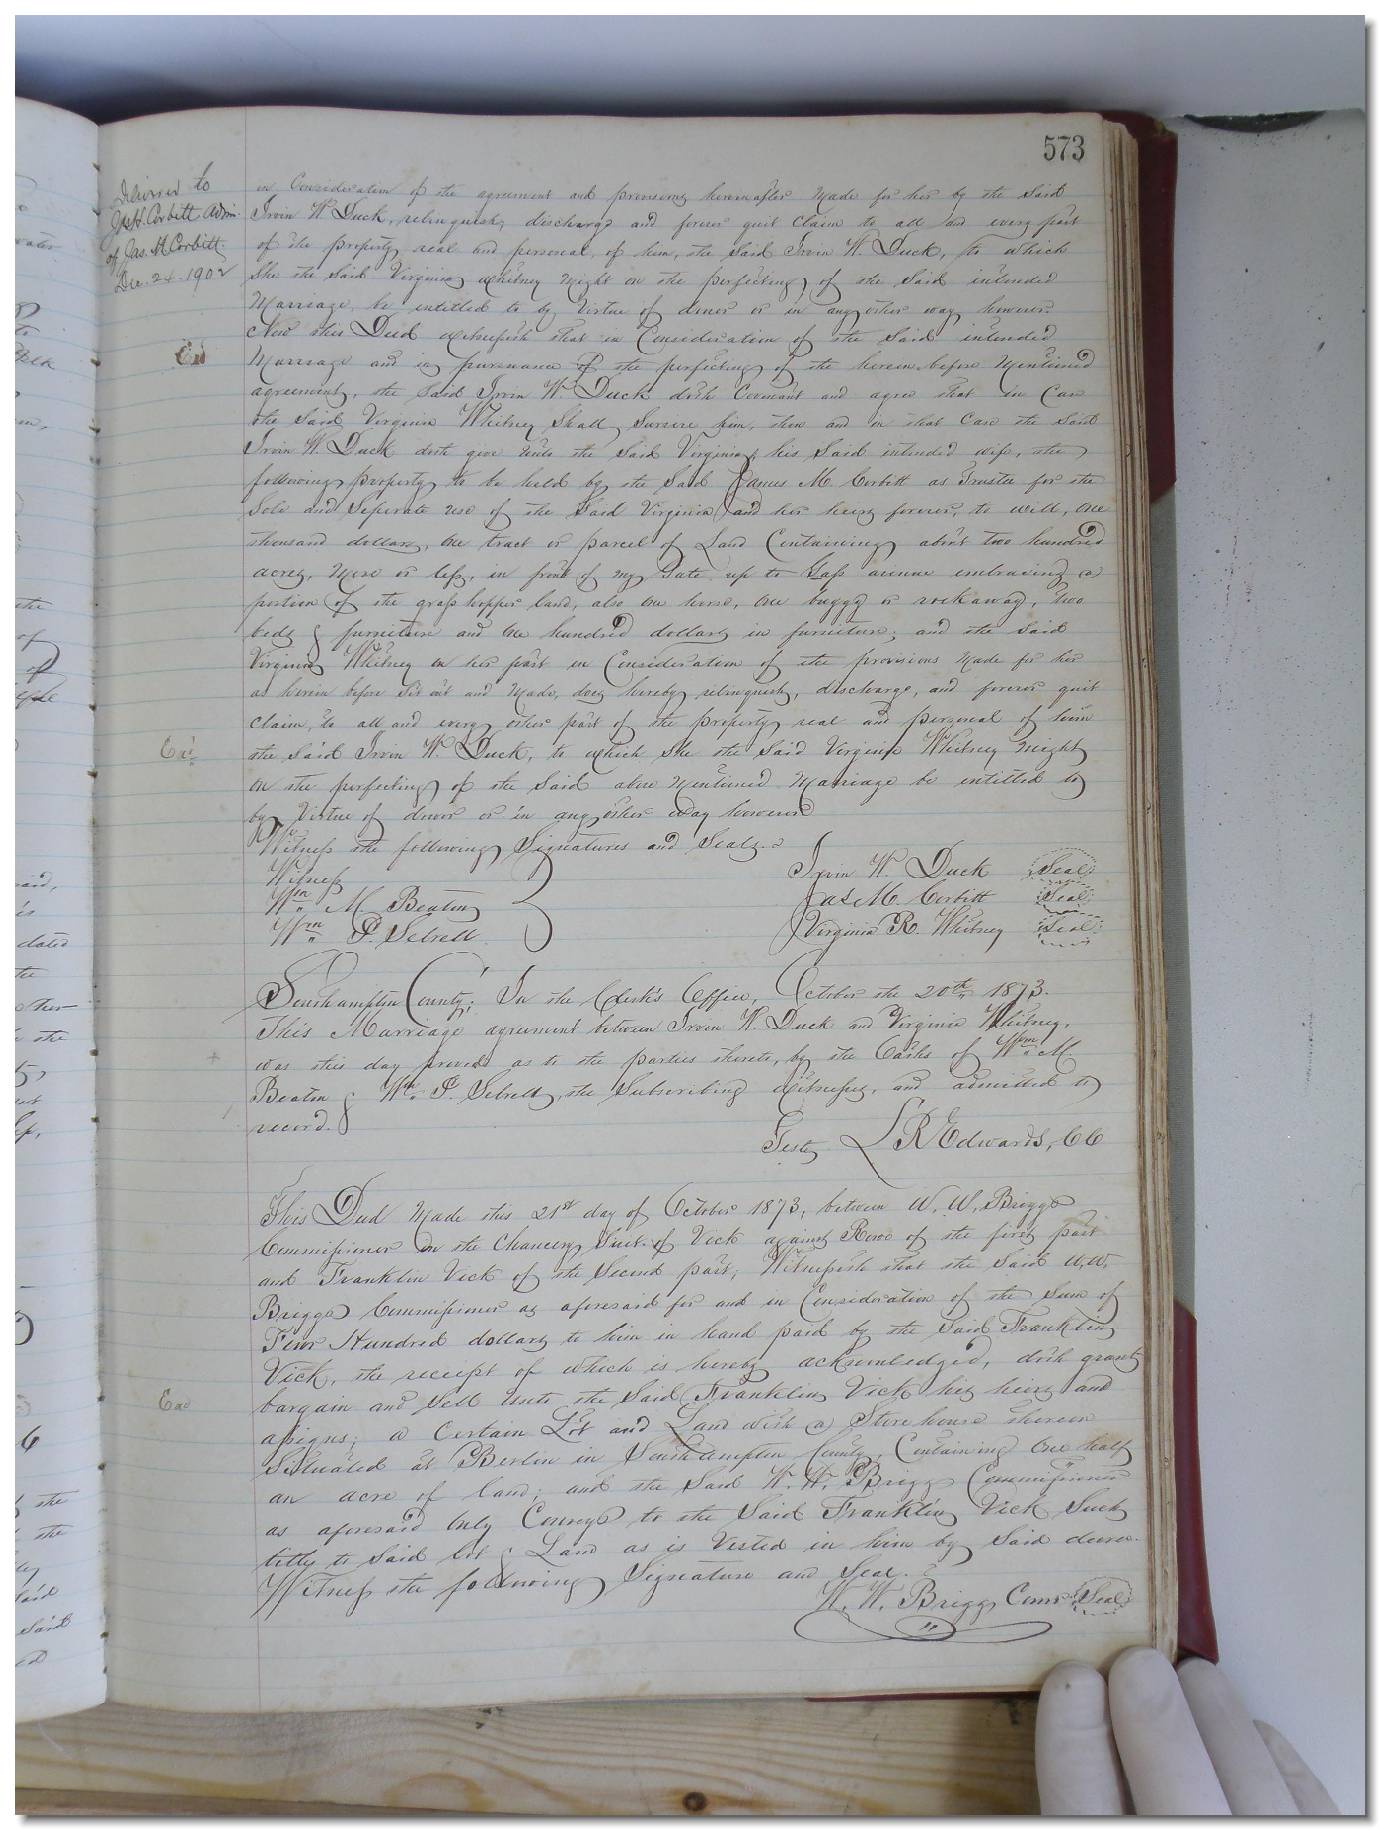 573
Delivered to
Jas. H. Corbitt Adm.
of Jas. M Corbitt
Dec. 24. 1902
in Consideration of the agreement and provisions hereinafter made for her by the Said
Irvin W. Duck, relinquish, discharge and forever quit Claim to all and every part
of the property real and personal, of him, the Said Irvin W. Duck, to which
She the Said Virginia Whitney Might on the perfecting of the Said intended
Marriage, be entitled to by Virtue of dower or in any other way however.
Now this Deed Witnesseth that in Consideration of the Said intended
Marriage and in pursuance of the perfecting of the herein before Mentioned
agreement, the Said Irvin W. Duck doth Covenant and agree that in Case
the Said Virginia Whitney Shall Survive him, then and in that Case the Said
Irvin W. Duck doth give unto the Said Virginia, his Said intended wife, the
following property to be held by the Said James M. Corbitt as Trustee for the
Sole and Seperate use of the Said Virginia and her heirs forever, to will, One
thousand dollars, One tract or parcel of Land Containing about two hundred
acres, More or less, in front of my Gate up to Gass avenue embracing a
portion of the grass hopper land, also one horse, One buggy or rockaway, Two
beds & furniture and One hundred dollars in furniture; and the Said
Virginia Whitney on her part in Consideration of the provisions Made for her
as herein before Set out and Made, does hereby relinquish, discharge, and forever quit
Claim, to all and every other part of the property real and personal of him
Exd
the Said Irvin W. Duck, to which She the Said Virginia Whitney Might
on the perfecting of the Said above Mentioned Marriage be entitled to
by Virtue of dower or in any other way however
Witness the following Signatures and Seals.
Witness
Wm M. Beaton
Wm P. Sebrell
Irvin W. Duck Seal
Jas M. Corbitt Seal
Virginia R. Whitney Seal
Southampton County; In the Clerk's Office, October the 20th, 1873.
This Marriage agreement between Irvin W. Duck and Virginia Whitney,
was this day proved as to the parties thereto, by the Oaths of Wm M.
Beaton & Wm P. Sebrell, the Subscribing Witnesses, and admitted to
record.
Teste L R Edwards, CC
This Deed Made this 21st day of October 1873, between W. W. Briggs
Commissioner in the Chancery Suit of Vick against Rowe of the first part
and Franklin Vick of the Second part; Witnesseth that the Said W. W.
Briggs Commissioner as aforesaid for and in Consideration of the Sum of
Four Hundred dollars to him in hand paid by the Said Franklin
Vick, the receipt of which is hereby acknowledged, doth grant
bargain and Sell unto the Said Franklin Vick his heirs and
assigns; a Certain Lot and Land with a Store house thereon
Situated at Berlin in Southampton County, Containing One half
an acre of land; and the Said W. W. Briggs Commissioner
as aforesaid Only Conveys to the Said Franklin Vick Such
title to Said lot & Land as is Vested in him by Said decree.
Witness the following Signature and Seal.
W. W. Briggs Comr Seal